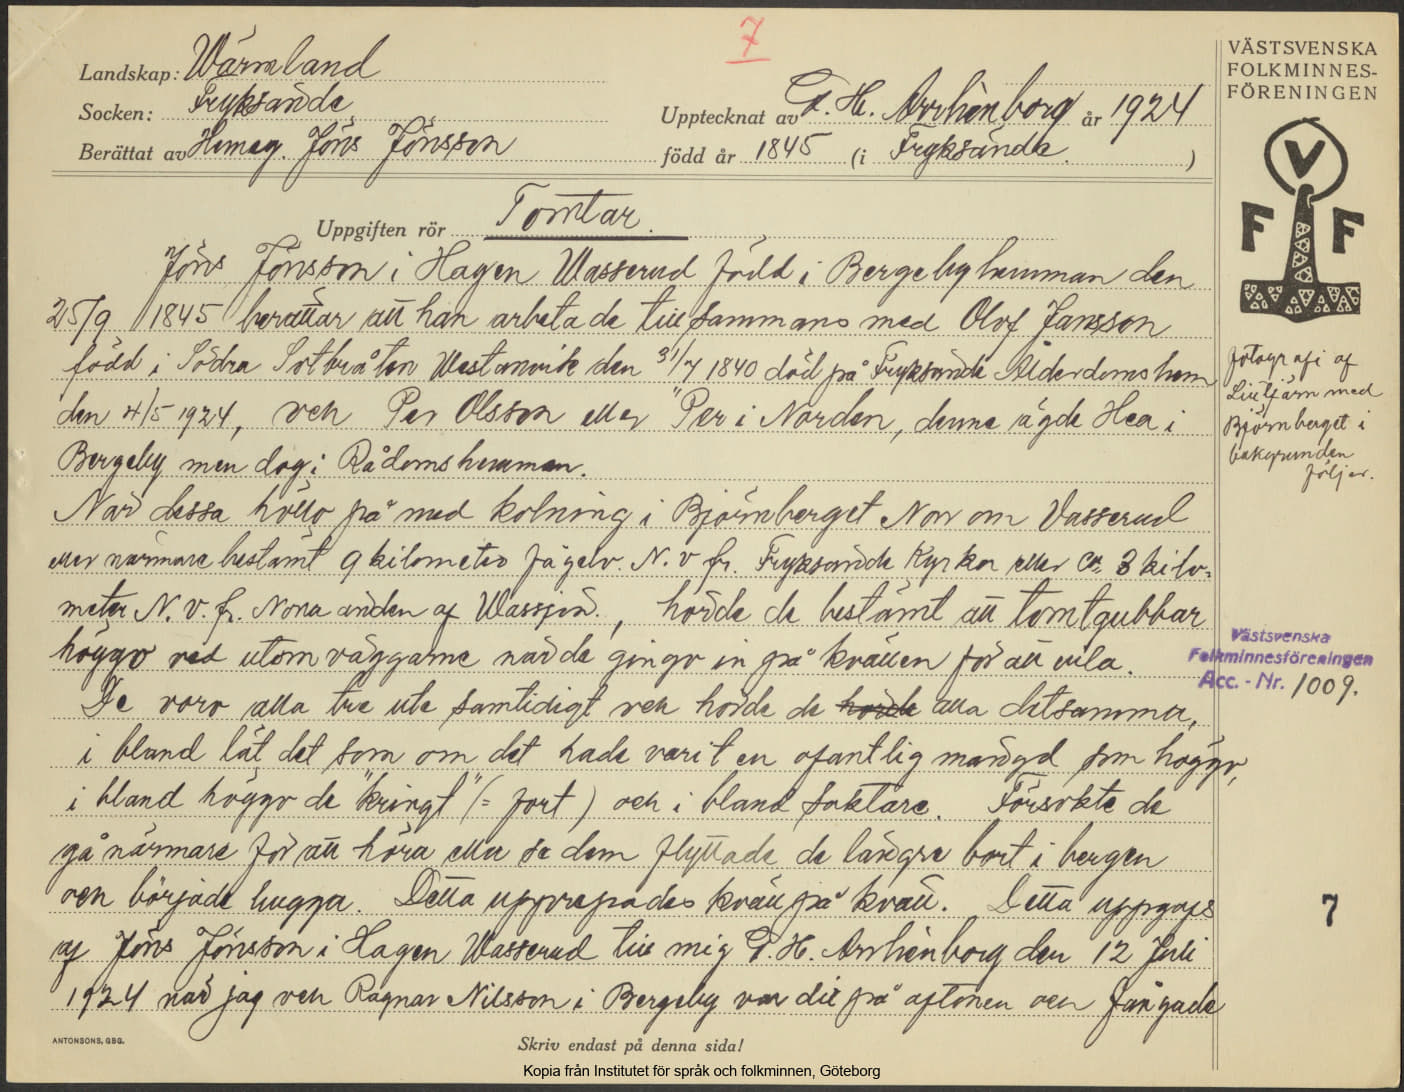 7
Landskap: Wärmland
Socken: Fryksände
Berättat av Hemag. Jöns Jönsson
Upptecknat av G. H. Arrhénborg år 1924
född år 1845 (i Fryksände.)
VÄSTSVENSKA
FOLKMINNES-
FÖRENINGEN
V
F F
Uppgiften rör Tomtar.
Jöns Jönsson i Hagen Wasserud född i Bergebyhemman den
25/9 1845 berättar att han arbetade tillsammans med Olof Jansson
född i Södra Sotbråten Westanvik den 31/7 1840 död på Fryksände Ålderdomshem
den 4/5 1924, och Per Olsson eller "Per i Norden, denne ägde Hea i
Bergeby men dog i Rådomshemman.
När dessa höllo på med kolning i Björnberget Norr om Vasserud
eller närmare bestämt 9 kilometer fågelv. N.v fr. Fryksände Kyrka eller ca 3 kilo-
meter N.v. fr. Norra änden af Wassjön, hörde de bestämt att tomtgubbar
höggo ved utom väggarne när de gingo in på kvällen för att vila.
De voro alla tre ute samtidigt och hörde de hörde alla detsamma,
i bland lät det som om det hade varit en ofantlig mängd som höggo,
i bland höggo de "kringt" (= fort) och i bland saktare. Försökte de
gå närmare för att höra eller se dem flyttade de längre bort i bergen
och började hugga. Detta upprepades kväll på kväll. Detta uppgafs
af Jöns Jönsson i Hagen Wasserud till mig G. H. Arrhénborg den 12 Juli
1924 när jag och Ragnar Nilsson i Bergeby var dit på aftonen och fångade
fotografi af
Lilltjärn med
Björnberget i
bakgrunden
följer.
Västsvenska
Folkminnesföreningen
Acc.-Nr. 1009.
7
ANTONSONS, GBG.
Skriv endast på denna sida!
Kopia från Institutet för språk och folkminnen, Göteborg